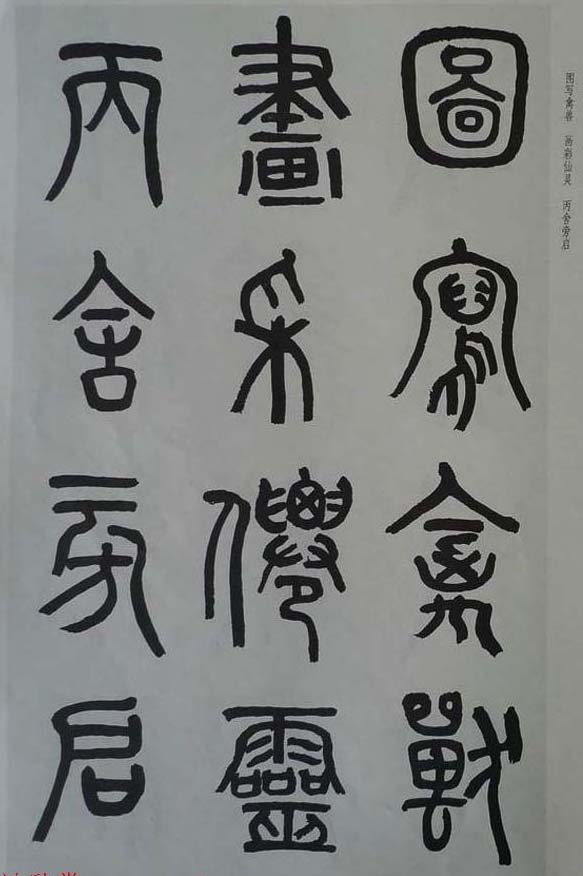 图写禽兽 画彩仙灵 丙舍旁启
圖寫禽獸
畫采僊靈
丙舍旁启